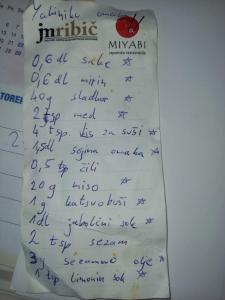 Yakiniku omaka
jnribič
MIYABI
japonska restavracija
0,6 dl sake *
0,6 dl mirin *
40g sladkor *
2 tsp med *
4 tsp. kis za suši *
1,5dl sojina omaka *
0,5 tsp čili
20g miso *
1g katsuobuši *
1dl jabolčni sok *
2 tsp sezam
3g sezamovo olje *
1 tsp limonin sok *
TOREK
2.